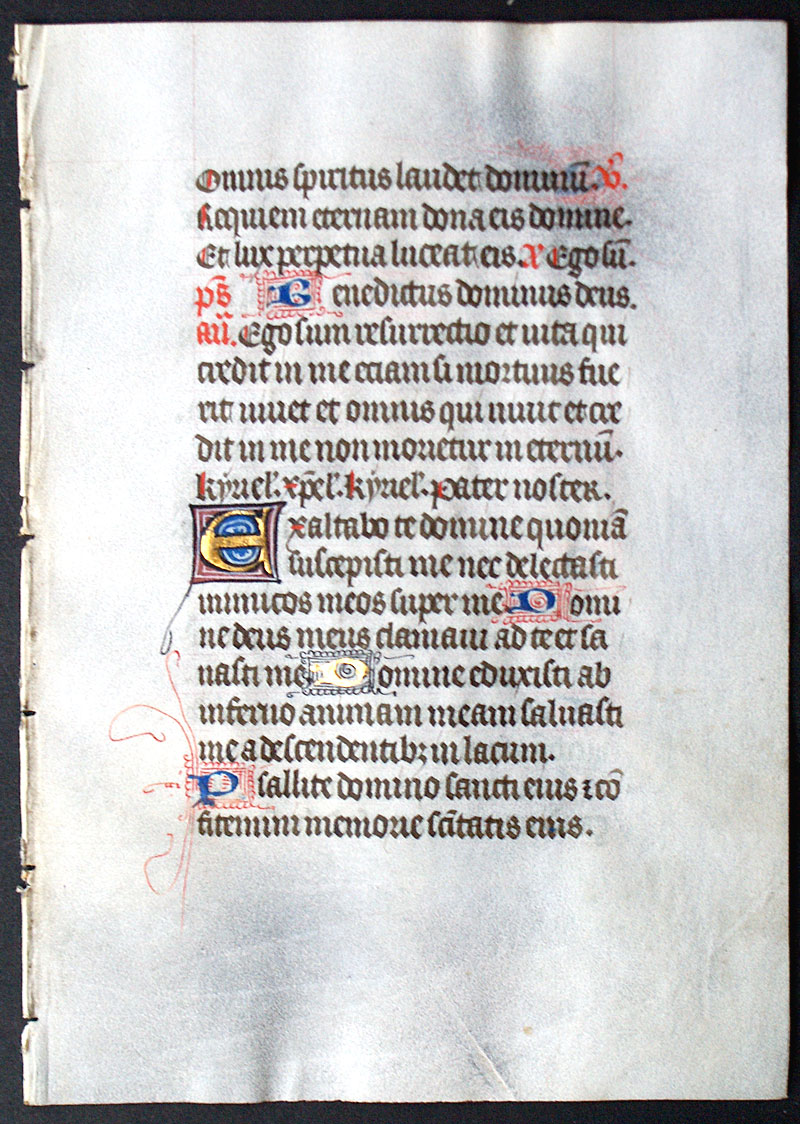 Omnis spiritus laudet dominū. V̄.
Requiem eternam dona eis domine.
Et lux perpetua luceat eis. A Ego sū.
p̄s Benedictus dominus deus.
an̄. Ego sum resurrectio et uita qui
credit in me eciam si mortuus fue
rit uiuet et omnis qui uiuit et cre
dit in me non morietur in eternū.
kyriel. xp̄el. kyriel. pater noster.
Exaltabo te domine quoniā
suscepisti me nec delectasti
inimicos meos super me. Domi
ne deus meus clamaui ad te et sa
nasti me. Domine eduxisti ab
inferno animam meam saluasti
me a descendentibꝫ in lacum.
Psallite domino sancti eius ⁊ cō
fitemini memorie sc̄itatis eius.